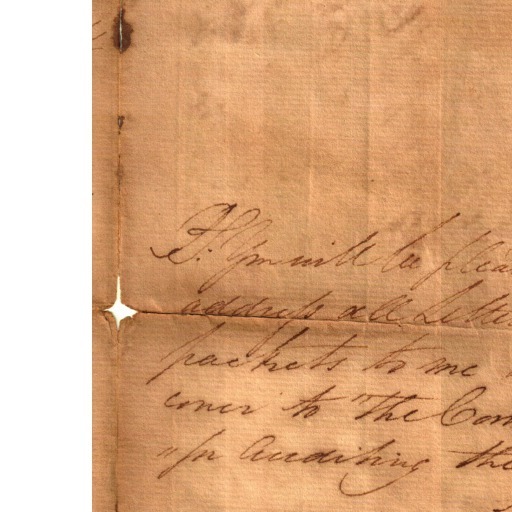 P.S. You will be pleas
address all Letter
packets to me
cover to "The Com
"for Auditing the